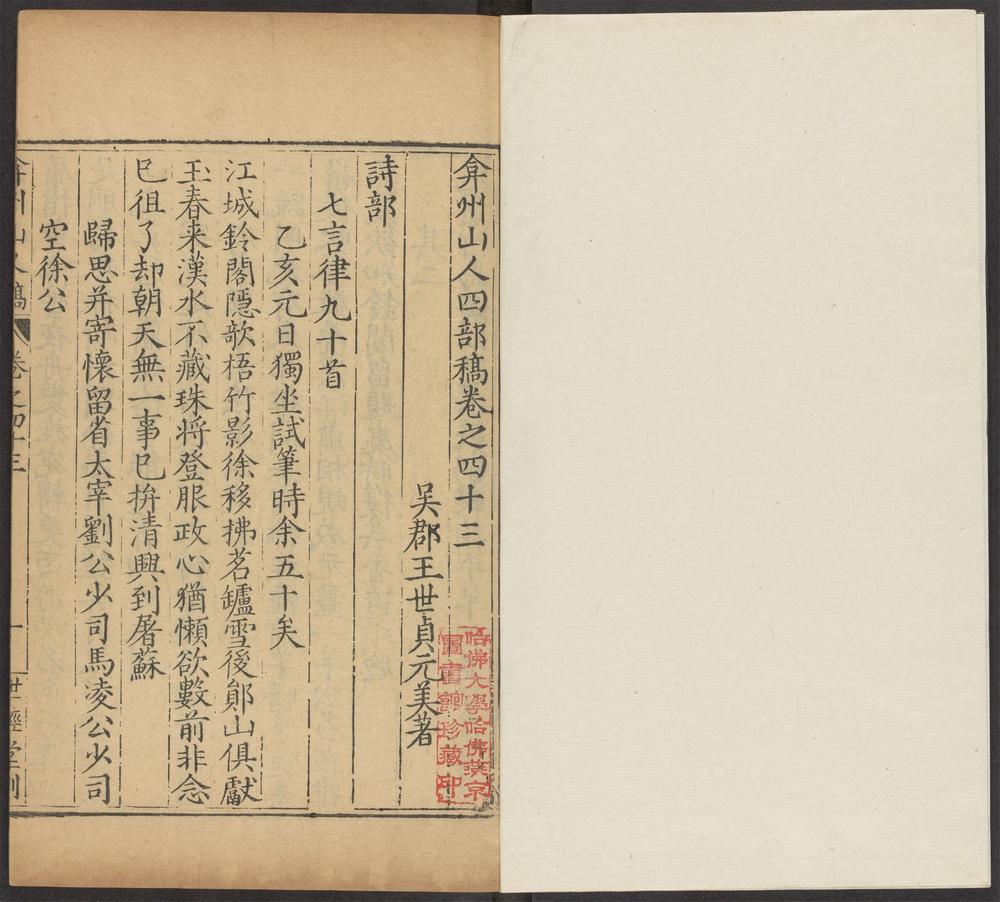 弇州山人四部稿卷之四十三
吳郡王世貞元美著
詩部
七言律九十首
乙亥元日獨坐試筆時余五十矣
江城鈴閣隱欹梧竹影徐移拂茗罏雪後鄖山俱獻
玉春来漢水不藏珠将登服政心猶懶欲數前非念
巳徂了却朝天無一事巳拚清興到屠蘇
歸思并寄懷留省太宰劉公少司馬凌公少司
空徐公
弇州山人稿 卷之四十三 一 世經堂刻
哈佛大學哈佛燕京
圖書館珍藏印